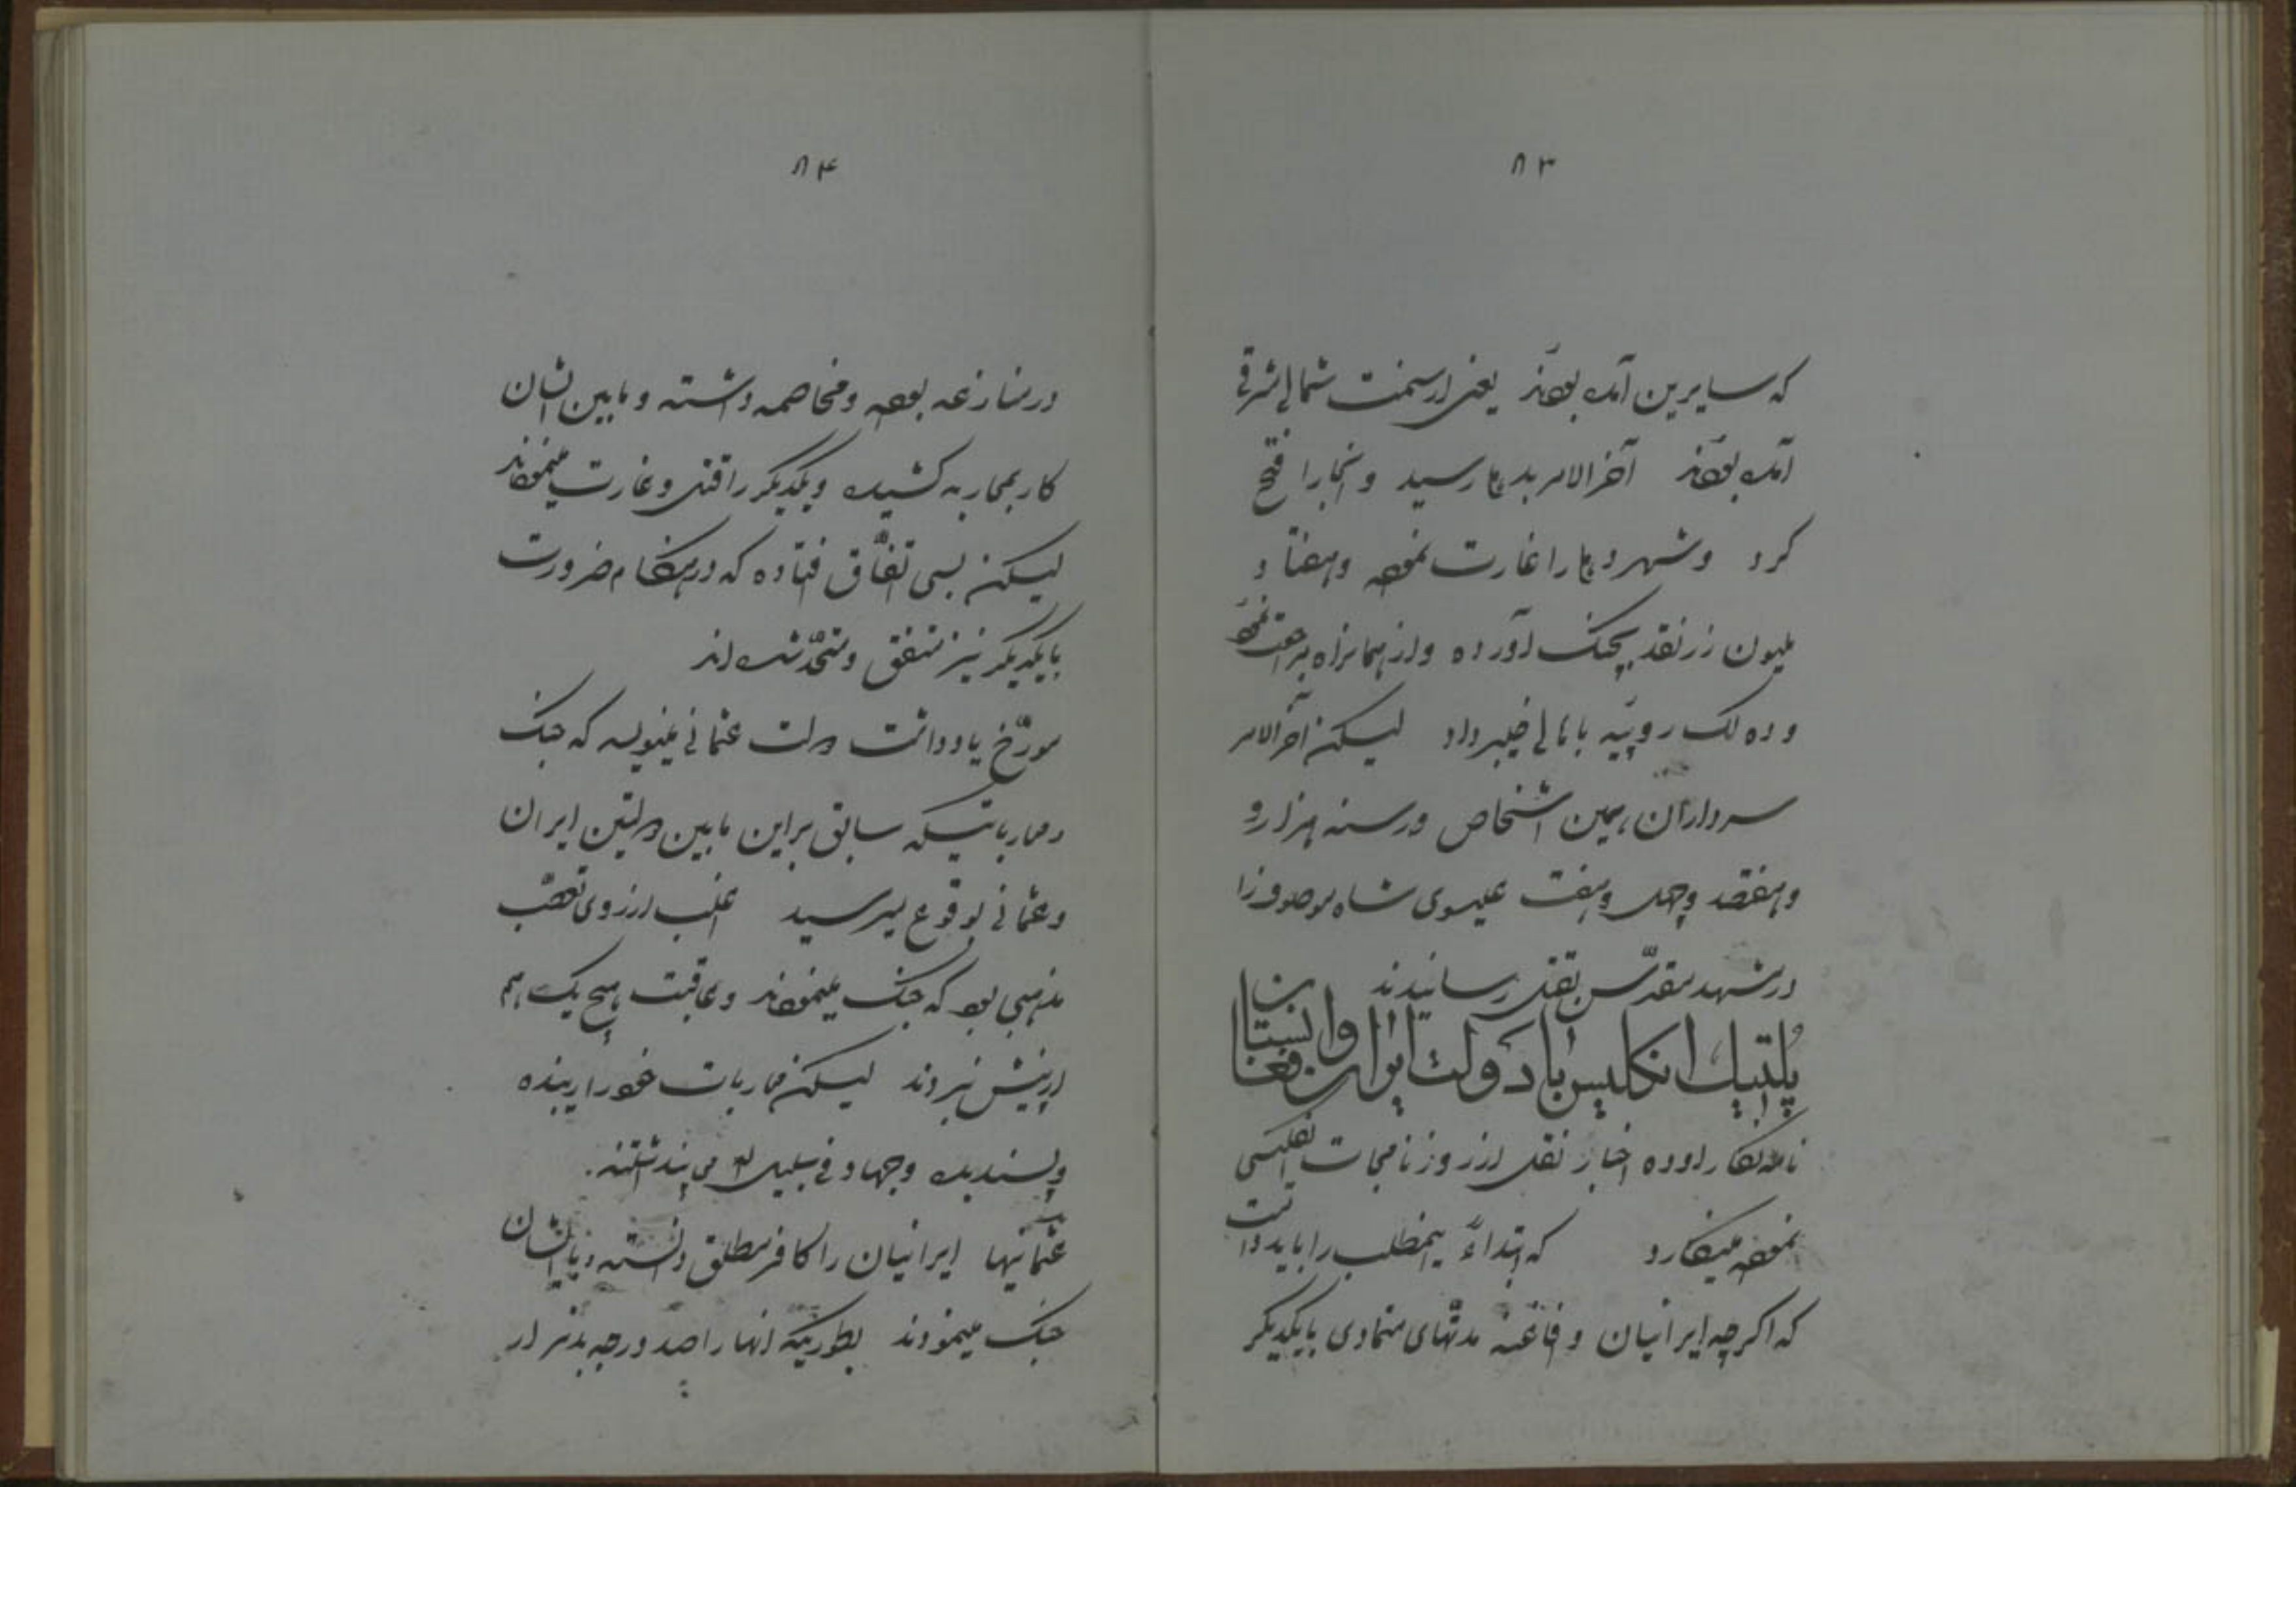 ۸۳
که سایرین آمده بودند یعنی از سمت شمالی شرقی
آمده بودند آخرالامر بدهلی رسید و انجا را فتح
کرد و شهر دهلی را غارت نموده و هفتاد
ملیون زر نقد بچنک آورده و از همانراه مراجعت نمود
و ده لک روپیه باهالی خیبر داد لیسکن آخرالامر
سرداران همین اشخاص در سنه هزار و
و هفتصد و چهل و هفت عیسوی شاه موصوف را
در مشهد مقدّس بقتل رسانیدند
پلتیک انکلیس با دولت ایران و افغانستان
نامه‌نکار اوده اخبار نقل از روزنامجات انکلیسی
نموده مینکارد که ابتداءً اینمطلب را باید دانست
که اکرچه ایرانیان و افاغنه مدتهای متمادی بایکدیکر
۸۴
در منازعه بوده و مخاصمه داشته و مابین ایشان
کار بمحاربه کشیده و یکدیکر را قتل و غارت مینمودند
لیسکن بسی اتفّاق افتاده که در هنکام ضرورت
بایکدیکر نیز متفق و متحّد شده‌اند
مورّخ یادداشت دولت عثمانی مینویسد که جنک
و محارباتیکه سابق براین مابین دولتین ایران
و عثمانی بوقوع میرسید اغلب از روی تعصّب
مذهبی بود که جنک مینمودند و عاقبت هیچ یک هم
از پیش نبردند لیسکن محاربات خود را زیبنده
و پسندیده و جهاد فی سبیل الله می پنداشتند.
عثمانیها ایرانیان را کافر مطلق دانسته و با ایشان
جنک مینمودند بطوریکه انها را صد درجه بدتر از